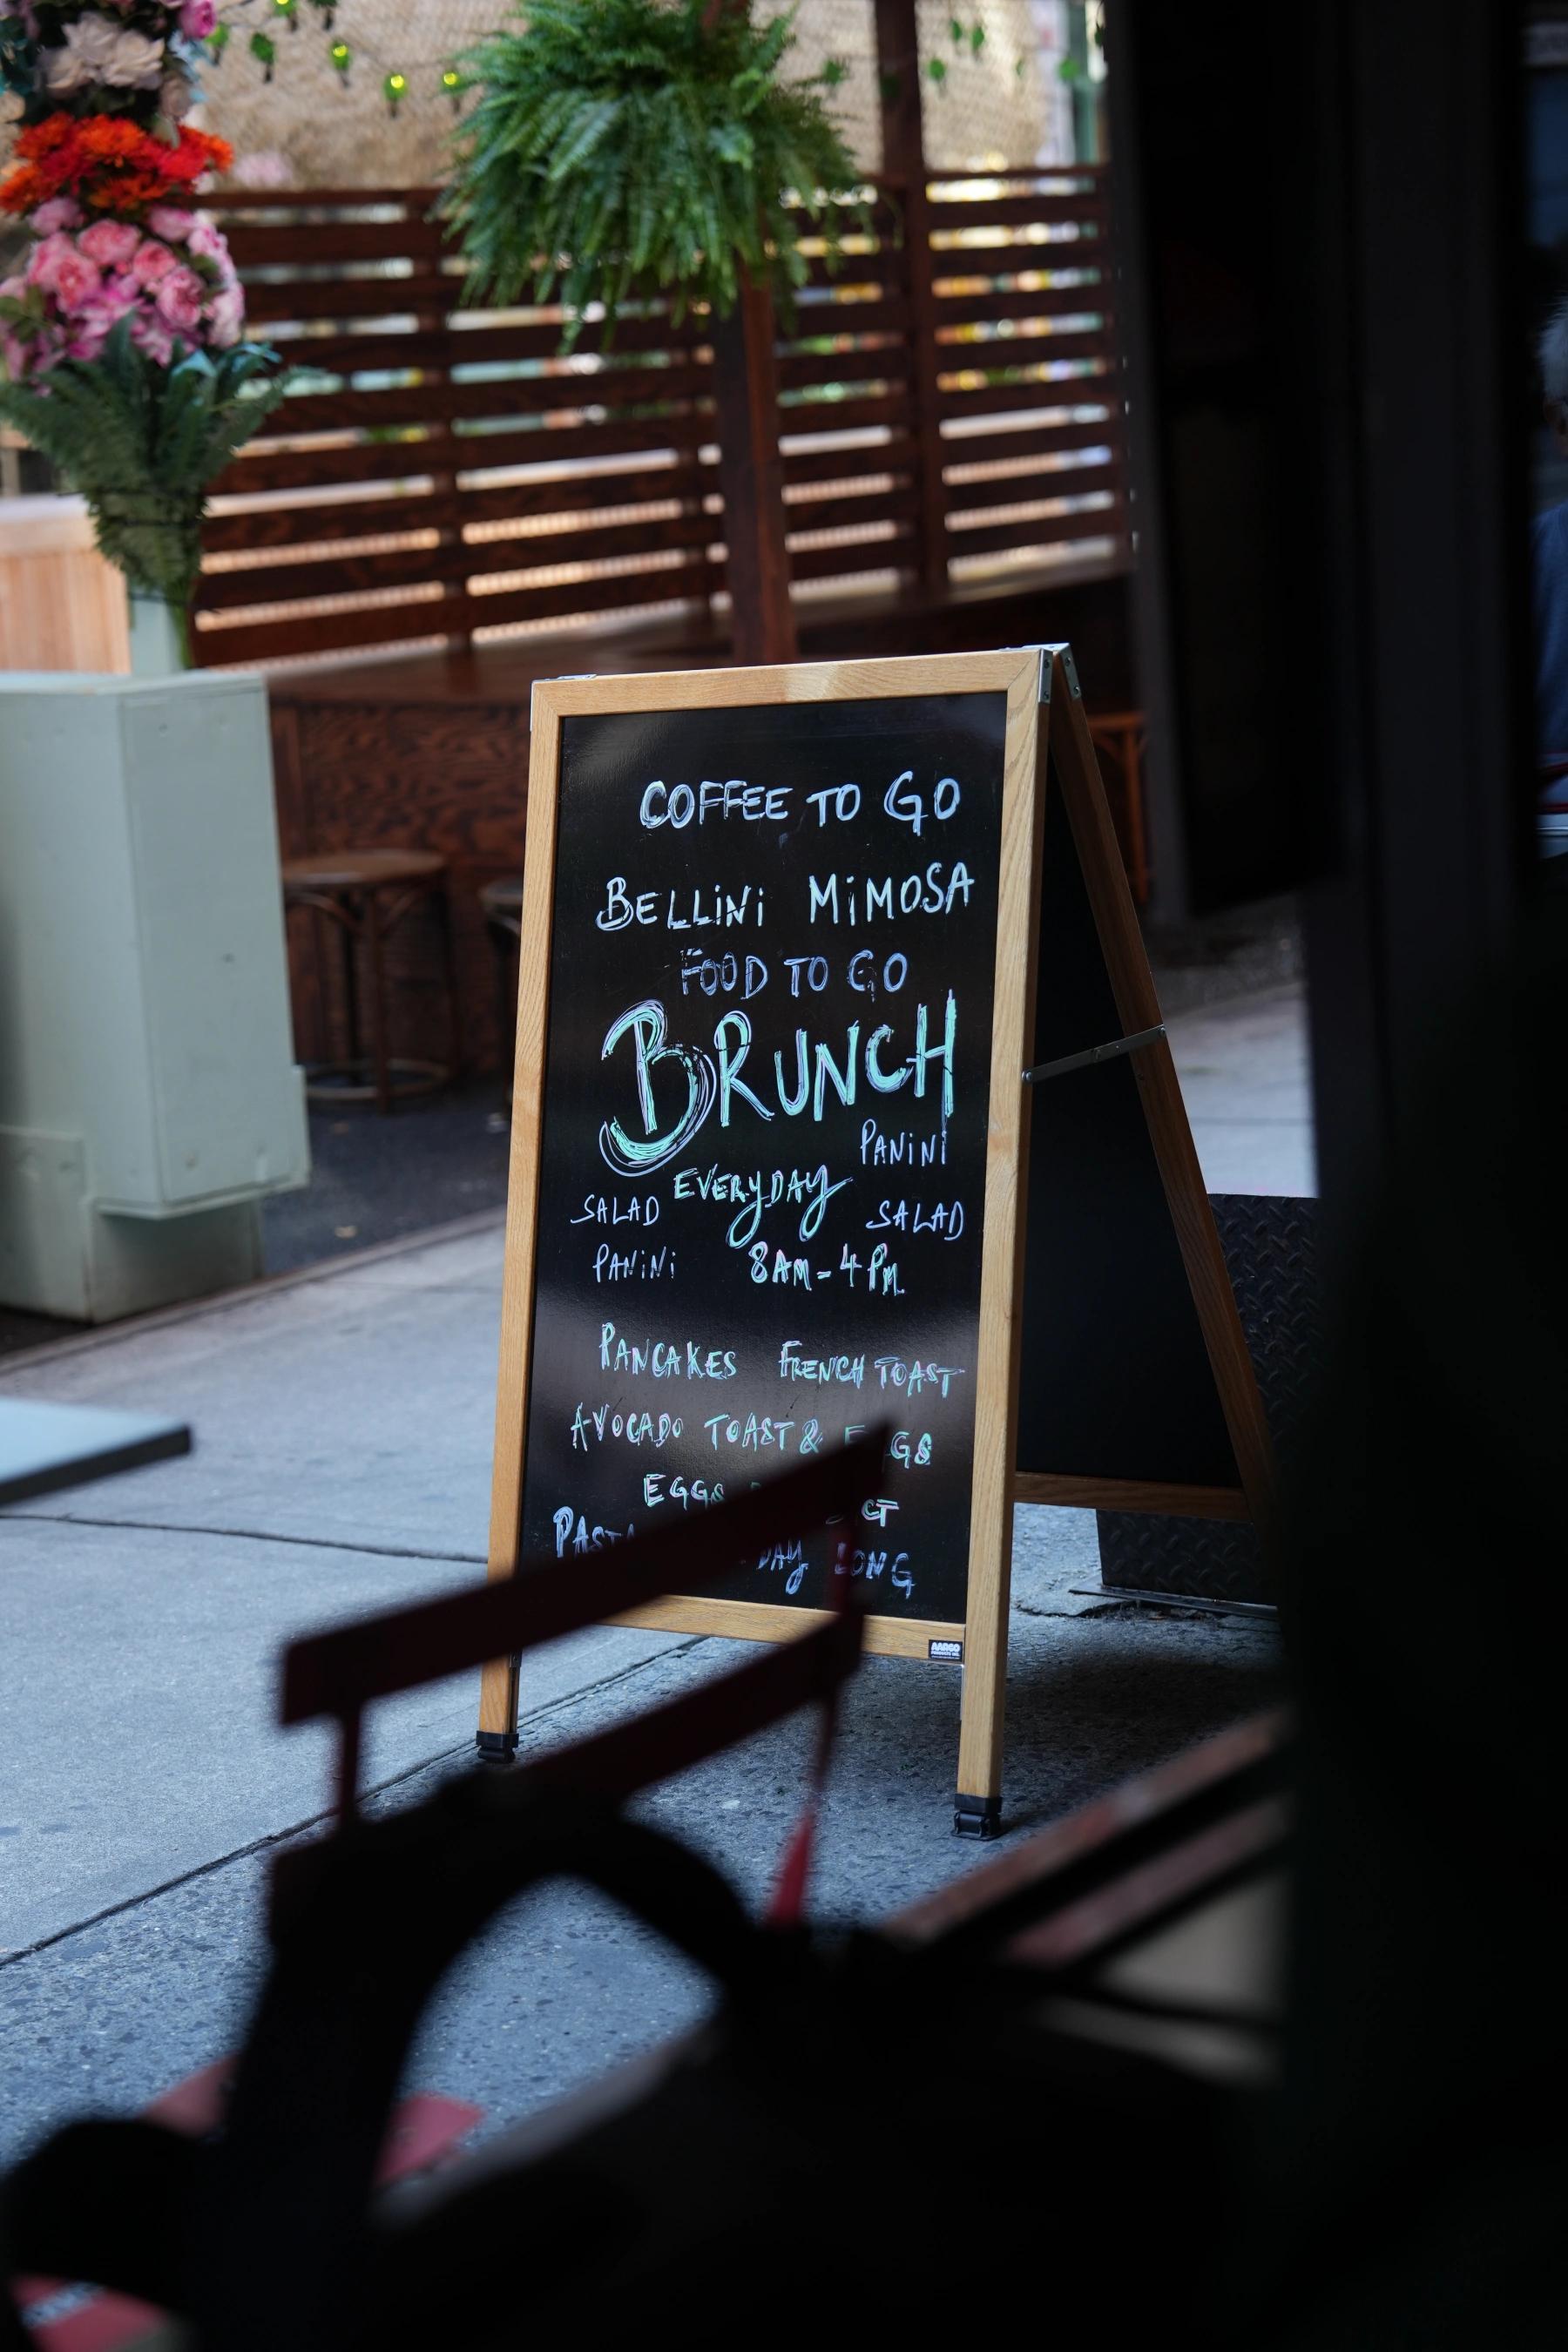 COFFEE TO GO
BELLiNi MiMOSA
FOOD TO GO
BRUNCH
PANiNi
EVERYDAY
SALAD SALAD
PANiNi 8AM-4PM
PANCAKES FRENCH TOAST
AVOCADO TOAST & EGGS
EGGS
PASTA DAY LONG
AARCO